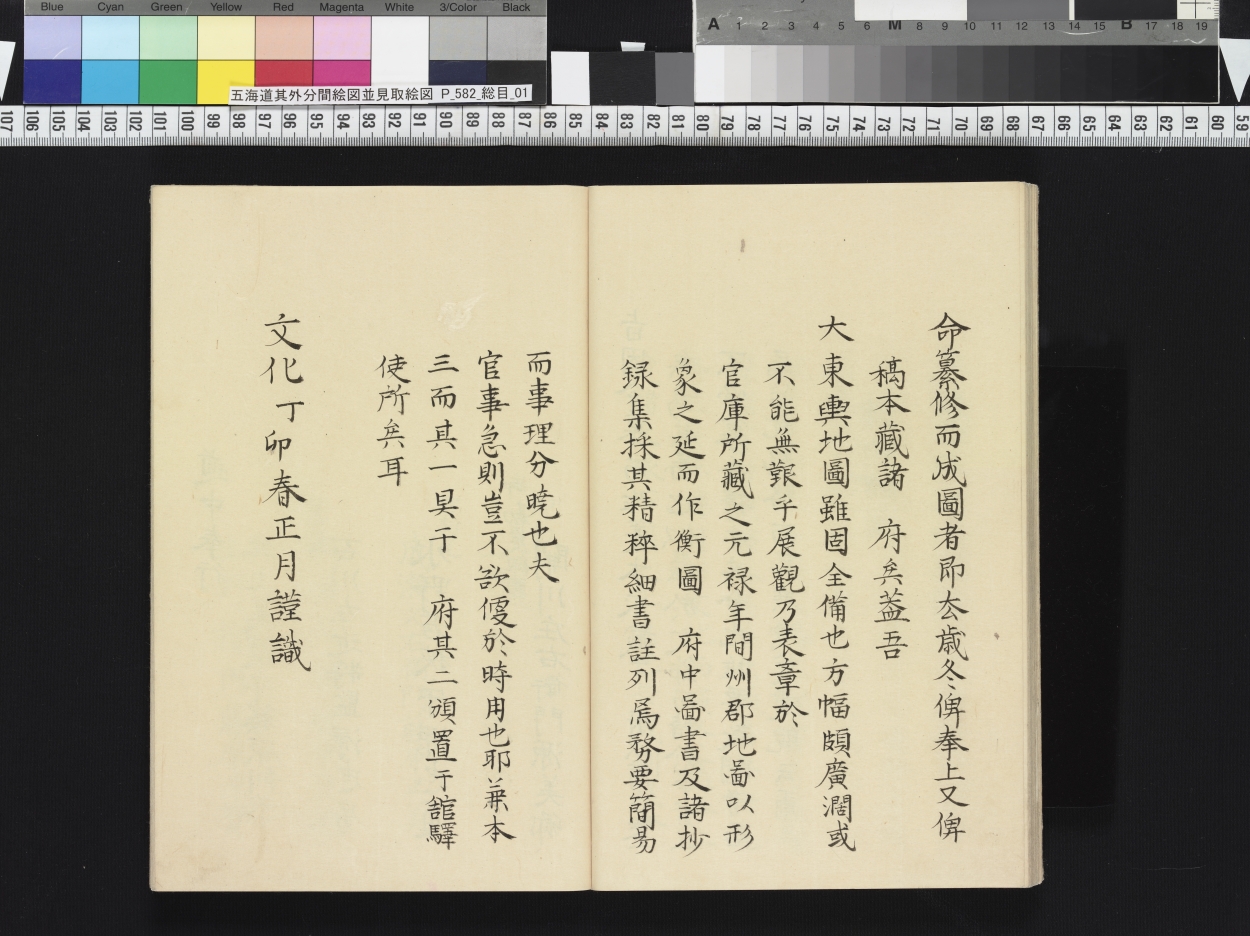 Blue Cyan Green Yellow Red Magenta White 3/Color Black
A 1 2 3 4 5 6 M 8 9 10 11 12 13 14 15 B 17 18 19
五海道其外分間絵図並見取絵図 P_582_総目_01
107 106 105 104 103 102 101 100 99 98 97 96 95 94 93 92 91 90 89 88 87 86 85 84 83 82 81 80 79 78 77 76 75 74 73 72 71 70 69 68 67 66 65 64 63 62 61 60 59
命纂修而成圖者即去歳冬俾奉上又俾
稿本藏諸 府矣葢吾
大東輿地圖雖固全備也方幅頗廣濶或
不能無艱乎展觀乃表章於
官庫所藏之元禄年間州郡地啚以形
象之延而作衡圖 府中啚書及諸抄
録集採其精稡細書註列焉務要簡易
而事理分曉也夫
官事急則豈不欲優於時用也耶兼本
三而其一具于 府其二頒置于舘驛
使所矣耳
文化丁卯春正月謹識